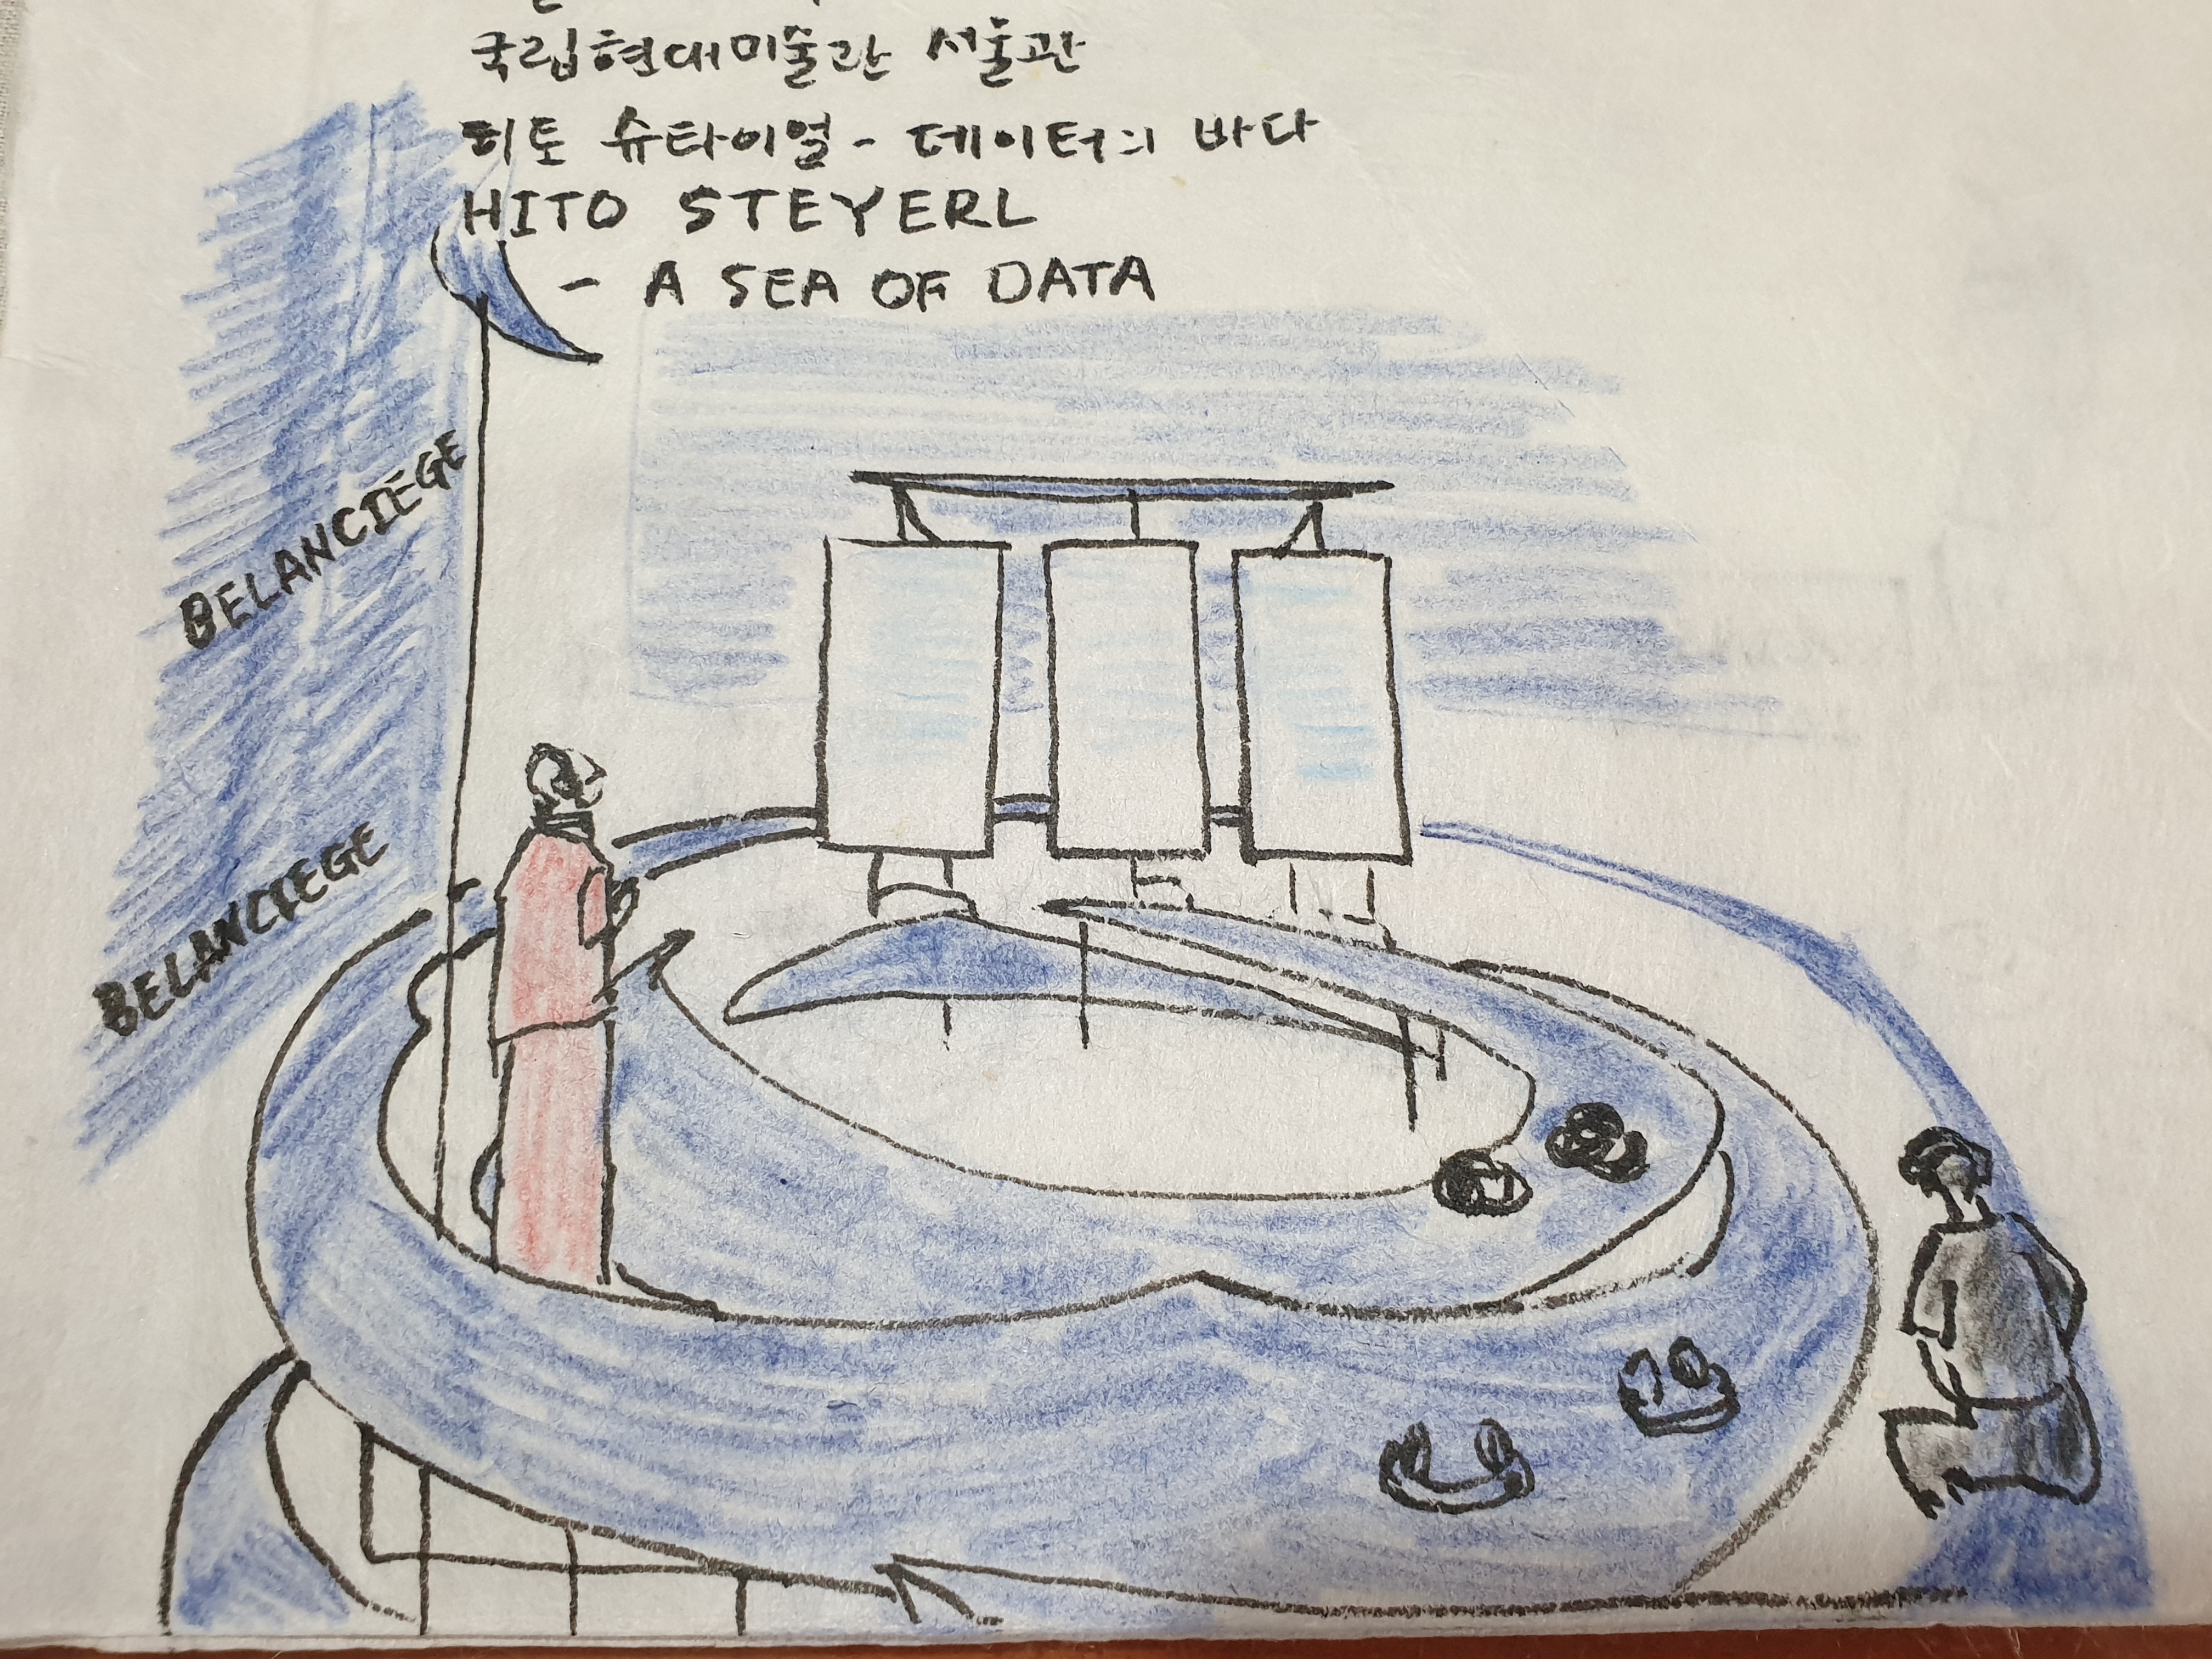 국립현대미술관 서울관
히토 슈타이얼 - 데이터의 바다
HITO STEYERL
- A SEA OF DATA
BELANCIEGE
BELANCIEGE